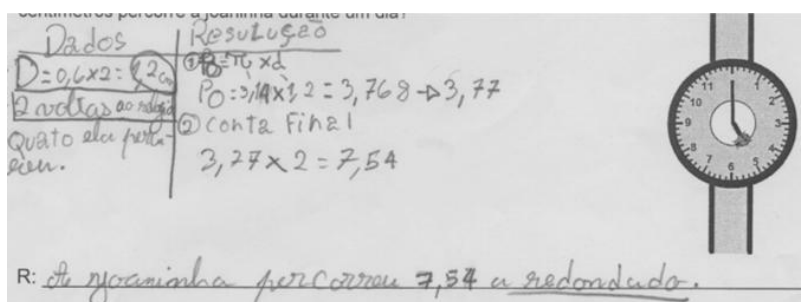 centímetros percorre a joaninha durante um dia?
Dados
D = 0,6 x 2 = 1,2 cm
2 voltas ao relógio
Quato ela percu-
Resolução
① PO = π x d
PO = 3,14 x 1,2 = 3,768 → 3,77
② conta Final
3,77 x 2 = 7,54
11
1
2
3
4
5
6
7
8
9
10
R: A yoraninha percorreu 7,54 a redondado.